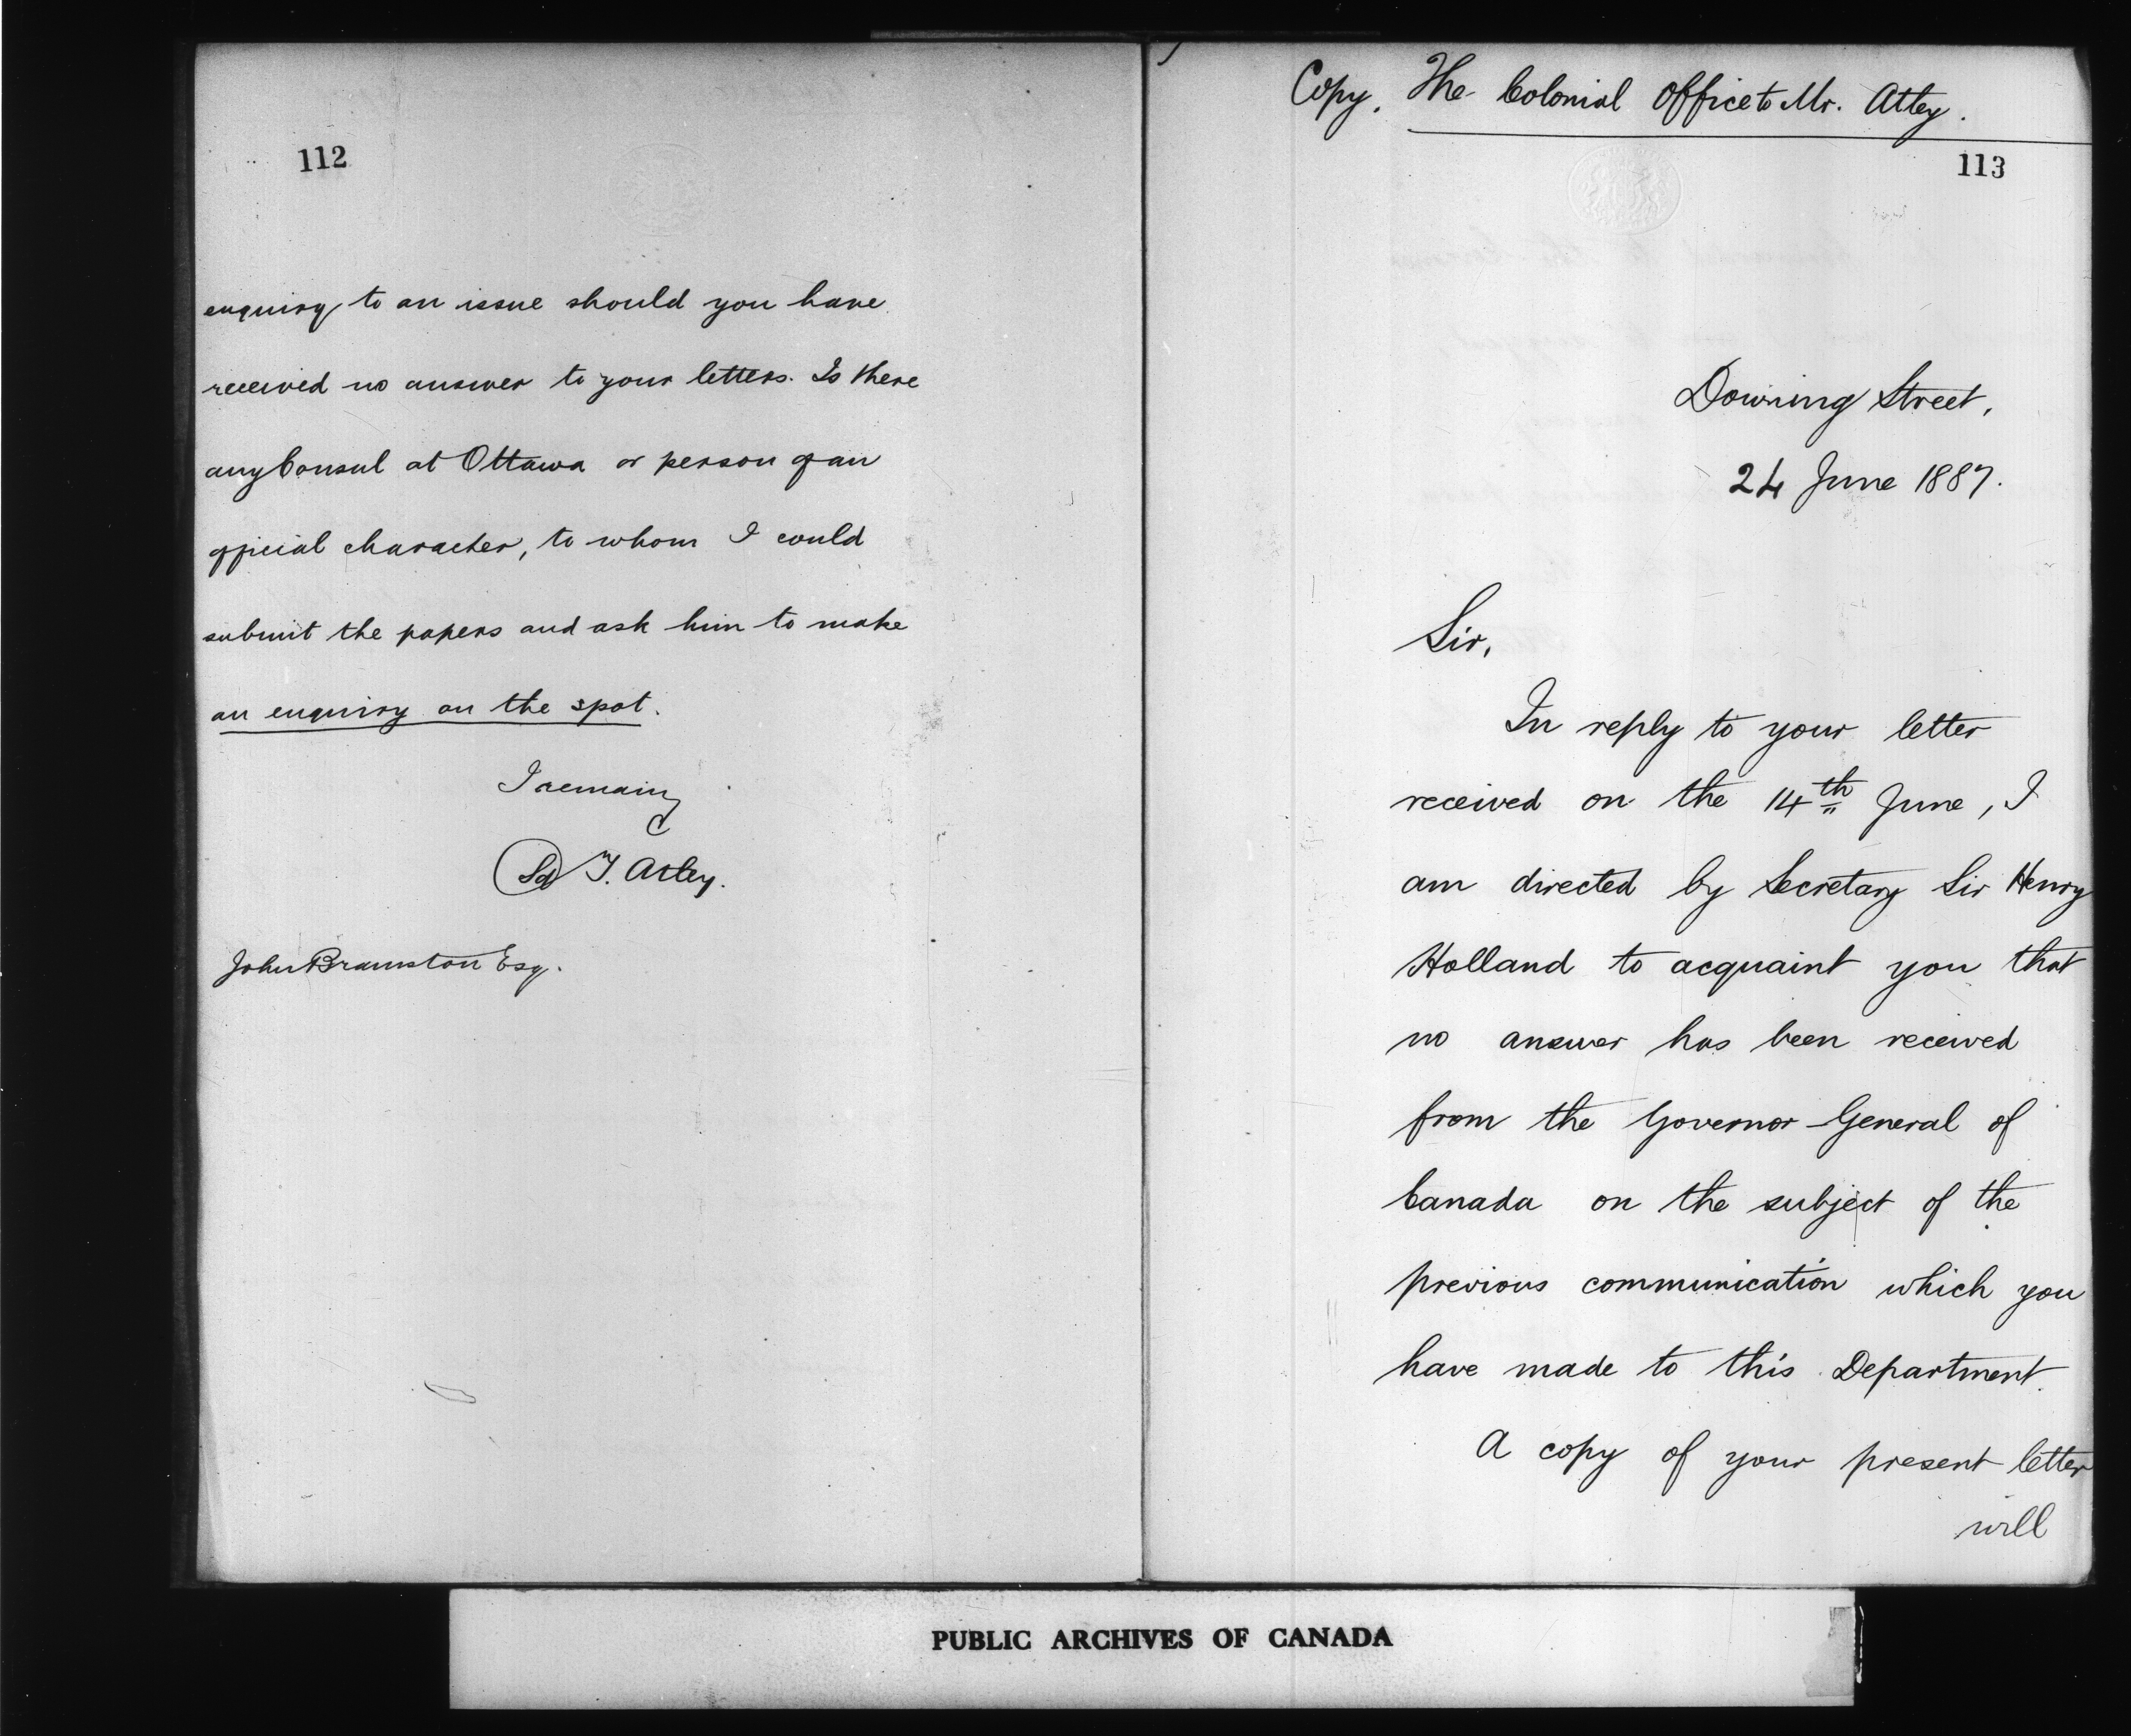 112
enquiry to an issue should you have
received no answer to your letters. Is there
any Consul at Ottawa or person of an
official character, to whom I could
submit the papers and ask him to make
an enquiry on the spot.
I remain
(Sd) T. Atley.
John Bramston Esq.
Copy. The Colonial Office to Mr. Atley.
113
Downing Street,
24 June 1887.
Sir,
In reply to your letter
received on the 14th June, I
am directed by Secretary Sir Henry
Holland to acquaint you that
no answer has been received
from the Governor-General of
Canada on the subject of the
previous communication which you
have made to this Department.
A copy of your present letter
will
PUBLIC ARCHIVES OF CANADA